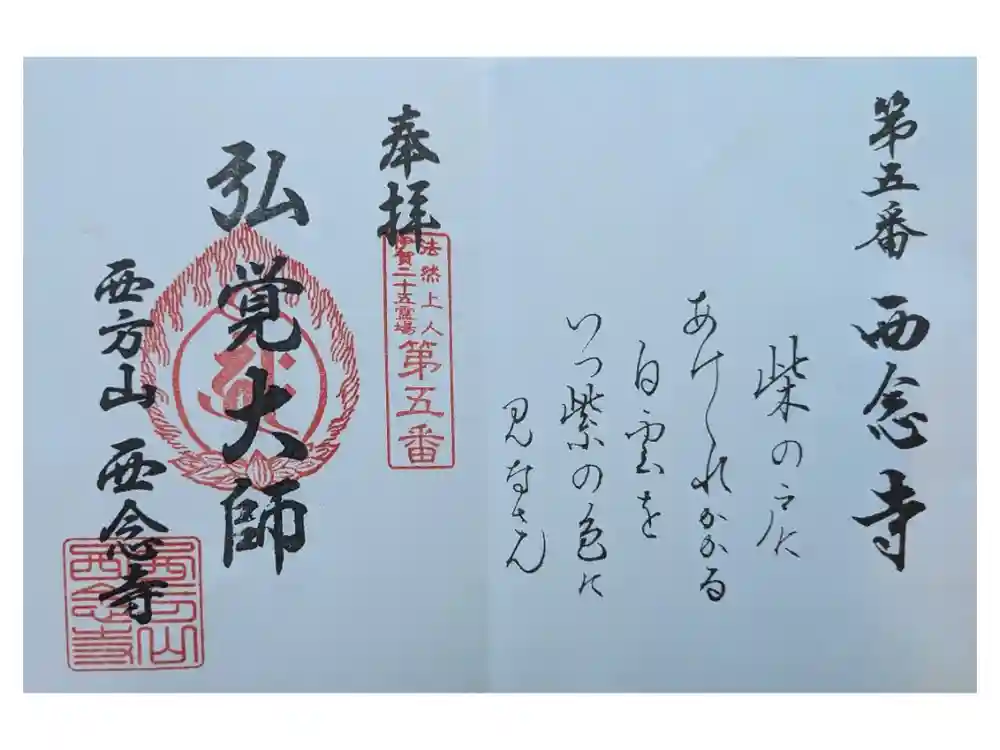 第五番 西念寺
柴の戸に
あけくれかかる
白雲を
いつ紫の色に
見なさん
奉拝
法然上人
甲賀二十五霊場
第五番
弘覚大師
西方山 西念寺
西方山
西念寺